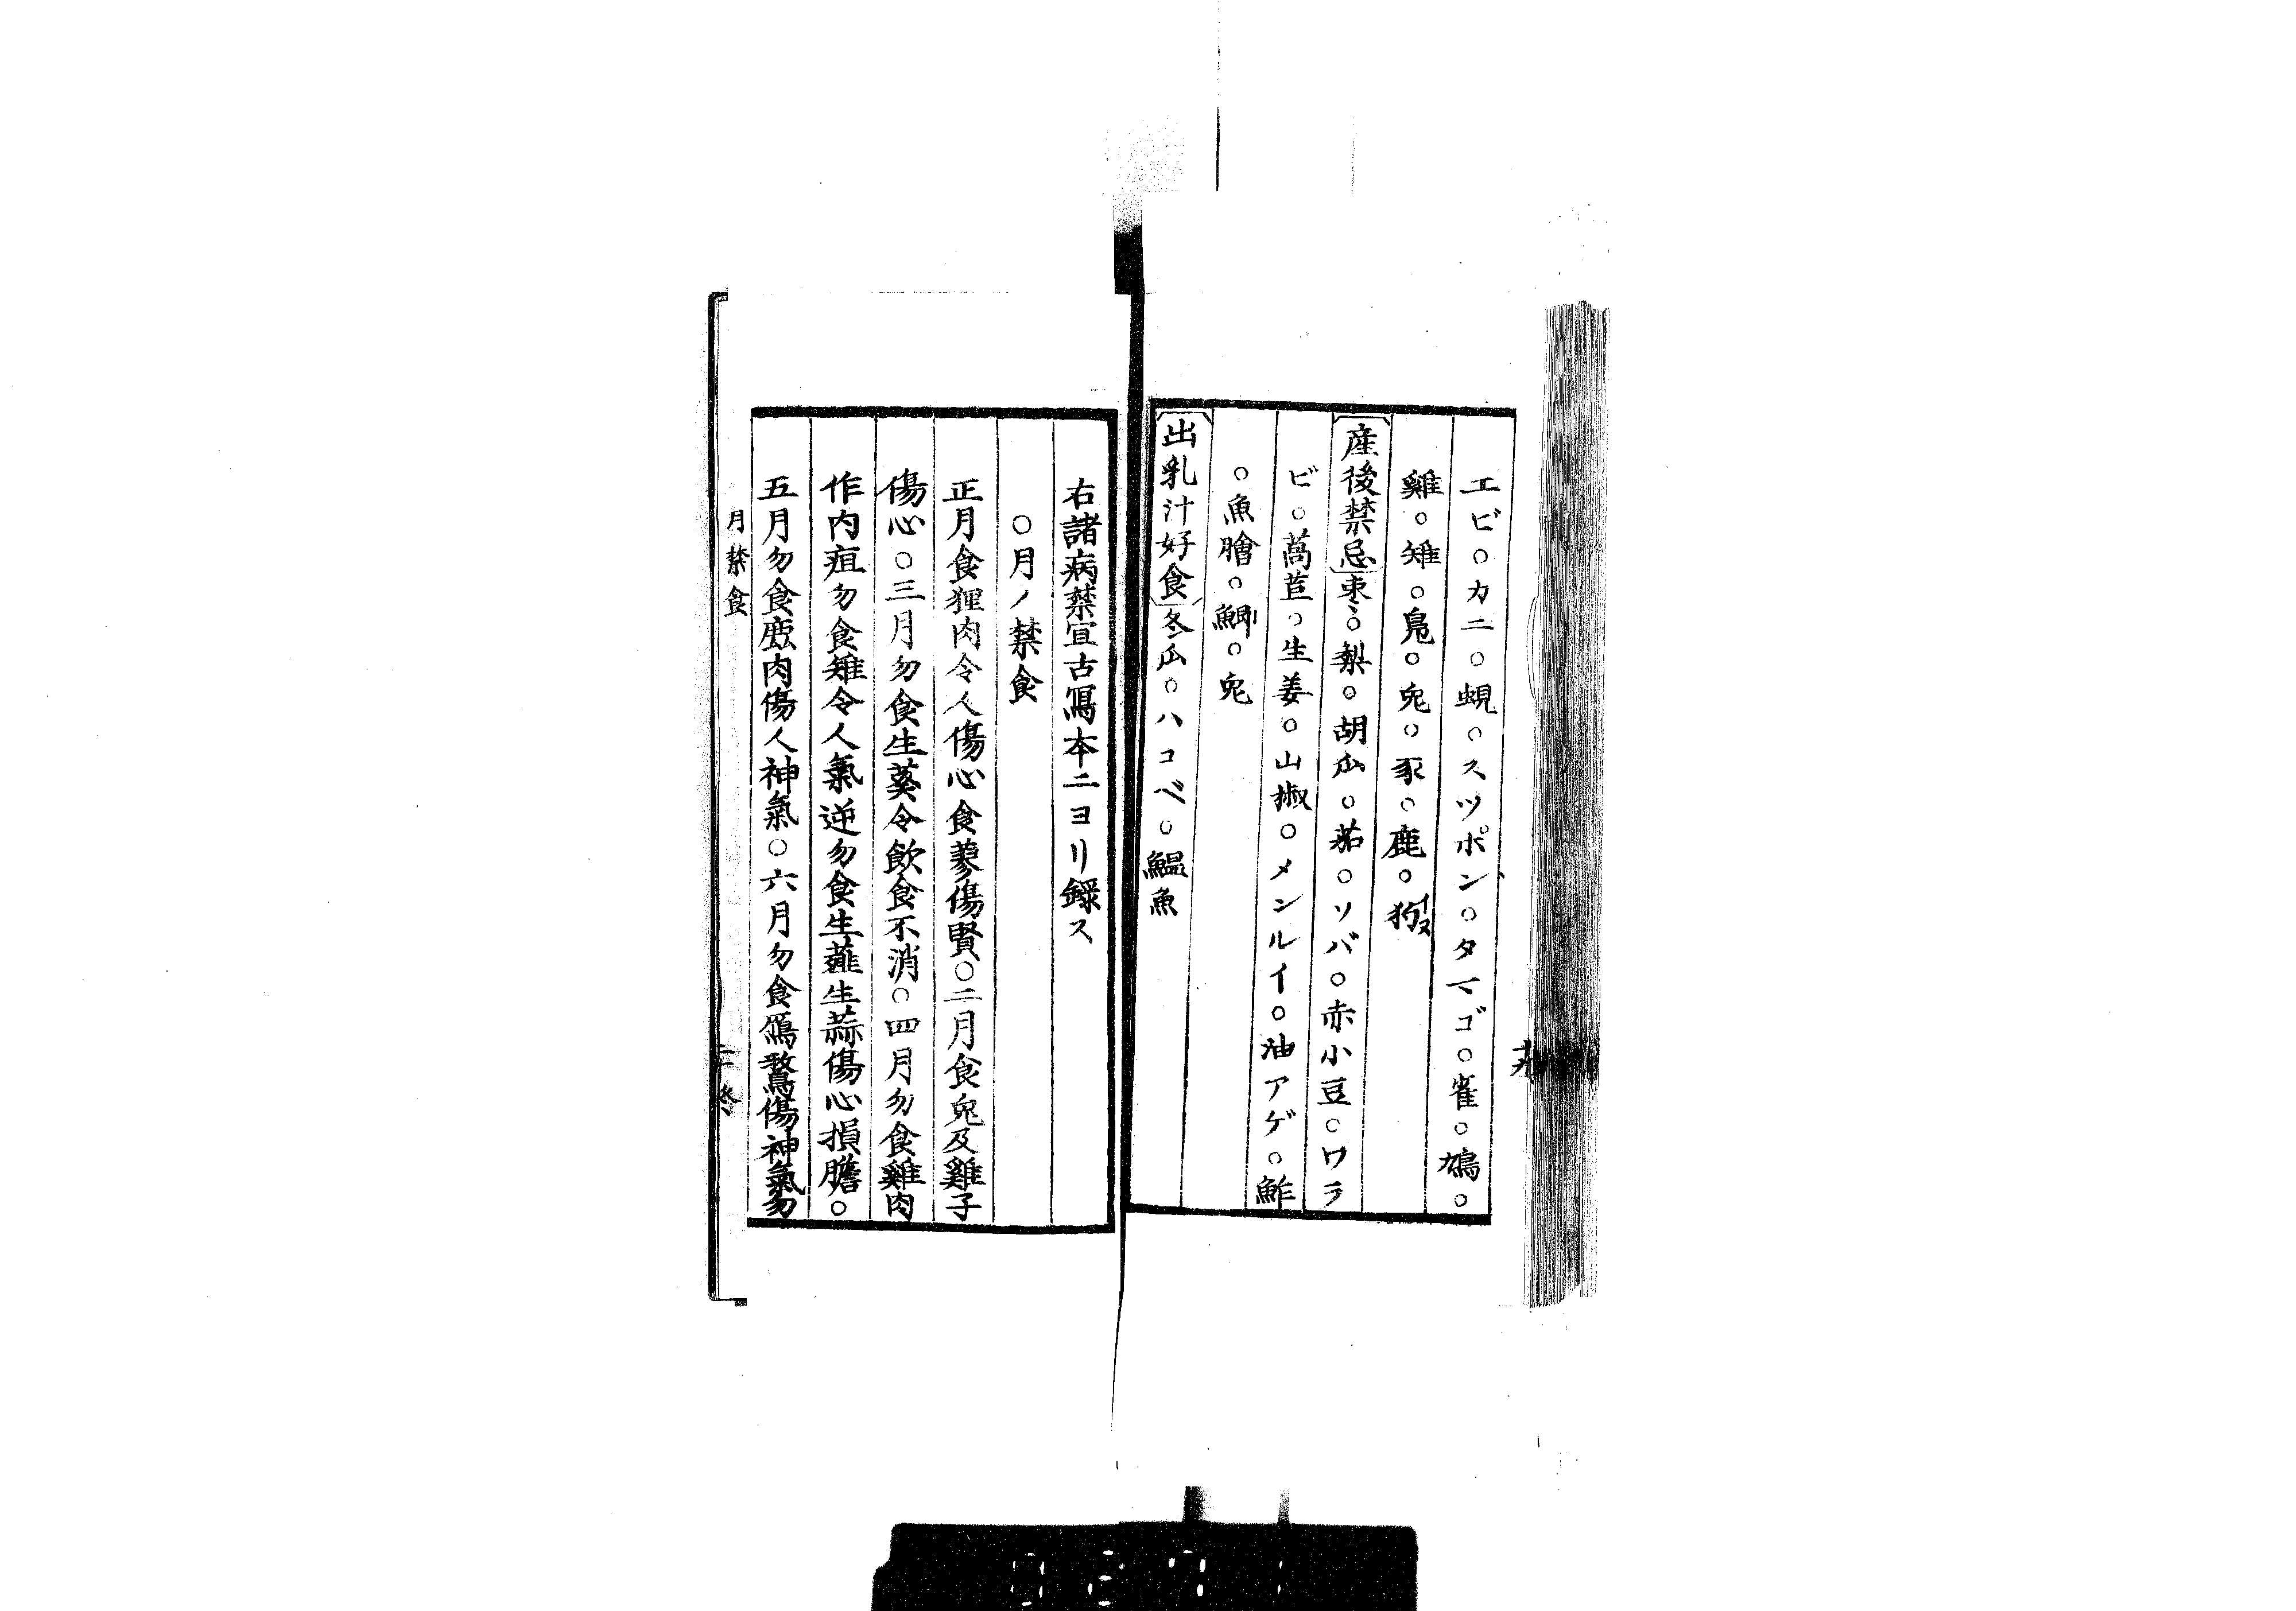 エビ○カニ○蜆○スツポン○タマゴ○雀○鳩○
雞○雉○鳬○兔○豕○鹿○狗イヌ
産後禁忌 棗○梨○胡瓜○茄○ソバ○赤小豆○ワラ
ビ○萵苣○生姜○山椒○メンルイ○油アゲ○鮓
○魚膾○鯽○兔
出乳汁好食 冬瓜○ハコベ○鰛魚
右諸病禁宜古寫本ニヨリ録ス
○月ノ禁食
正月食狸肉令人傷心食蓼傷腎○二月食兔及雞子
傷心○三月勿食生葵令飲食不消○四月勿食雞肉
作内疽勿食雉令人氣逆勿食生薤生蒜傷心損膽○
五月勿食鹿肉傷人神氣○六月勿食鴈鶩傷神氣勿
月禁食